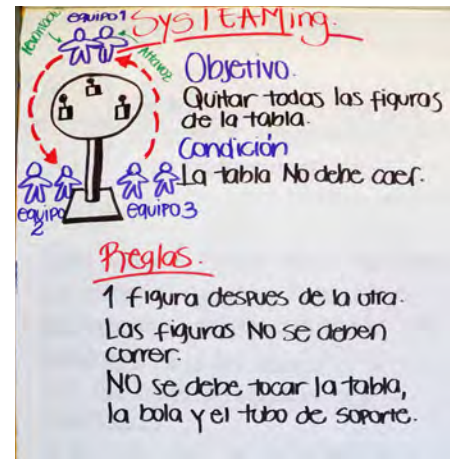 SySTEAMing.
equipo1
Altavoz
Objetivo.
Quitar todas las figuras
de la tabla.
Condición
La tabla No debe caer.
equipo
2
equipo 3
Reglas.
1 figura despues de la otra.
Las figuras No se deben
correr.
NO se debe tocar la tabla,
la bola y el tubo de soporte.